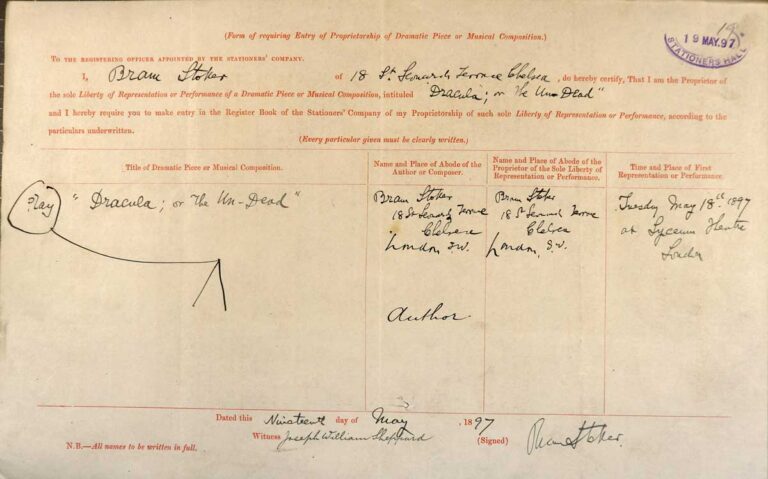 (Form of requiring Entry of Proprietorship of Dramatic Piece or Musical Composition.)
19 MAY.97
STATIONERS HALL
TO THE REGISTERING OFFICER APPOINTED BY THE STATIONERS' COMPANY.
I, Bram Stoker of 18 St Leonards Terrace Chelsea, do hereby certify, That I am the Proprietor of
the sole Liberty of Representation or Performance of a Dramatic Piece or Musical Composition, intituled "Dracula; or The Un-Dead"
and I hereby require you to make entry in the Register Book of the Stationers' Company of my Proprietorship of such sole Liberty of Representation or Performance, according to the
particulars underwritten.
(Every particular given must be clearly written.)
Title of Dramatic Piece or Musical Composition.
Name and Place of Abode of the
Author or Composer.
Name and Place of Abode of the
Proprietor of the Sole Liberty of
Representation or Performance.
Time and Place of First
Representation or Performance.
Play "Dracula; or The Un-Dead"
Bram Stoker
18 St Leonards Terrace
Chelsea
London S.W.
Author.
Bram Stoker
18 St Leonards Terrace
Chelsea
London, S.W.
Tuesday May 18th 1897
at Lyceum Theatre
London
Dated this Nineteenth day of May, 1897
Witness Joseph William Sheppard (Signed) Bram Stoker.
N.B.—All names to be written in full.